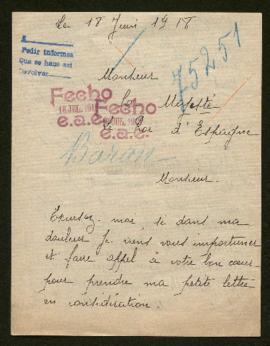 Le 18 Juin 1918
Pedir informes
Que se haga así
75251
Monsieur
Sa Majesté
Fecho
e.a.e.
Fecho
e.a.e.
Le Roi d'Espagne
Baron
Monsieur
Excusez-moi, si dans ma
douleur je viens vous importuner
et faire appel à votre bon cœur
pour prendre ma petite lettre
en considération